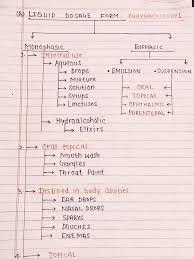 LIQUID DOSAGE FORM PHARMACEUTICS I
Monophasic
BIPHASIC
1. Internal use
Aqueous
• EMULSION • SUSPENSION
Drops
Mixture
Solution
Syrups
Linctuses
ORAL
TOPICAL
OPHTHALMIC
PARENTERAL
Hydroalcoholic
Elixirs
2. Oral topical
Mouth wash
Gargles
Throat Paint
3. Instilled in body cavities
EAR DROPS
NASAL DROPS
SPARYS
DOUCHES
ENEMAS
4. TOPICAL